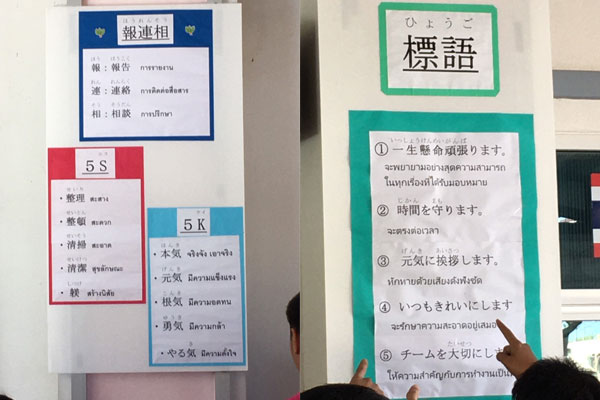 ほうれんそう
報連相
ほう ほうこく
報：報告 การรายงาน
れん れんらく
連：連絡 การติดต่อสื่อสาร
そう そうだん
相：相談 การปรึกษา
5S
せいり
・整理 สะสาง
せいとん
・整頓 สะดวก
せいそう
・清掃 สะอาด
せいけつ
・清潔 สุขลักษณะ
しつけ
・躾 สร้างนิสัย
5K
ほんき
・本気 จริงจัง เอาจริง
げんき
・元気 มีความแข็งแรง
こんき
・根気 มีความอดทน
ゆうき
・勇気 มีความกล้า
き
・やる気 มีความตั้งใจ
ひょうご
標語
いっしょうけんめいがんば
① 一生懸命頑張ります。
จะพยายามอย่างสุดความสามารถ
ในทุกเรื่องที่ได้รับมอบหมาย
じかん まも
② 時間を守ります。
จะตรงต่อเวลา
げんき あいさつ
③ 元気に挨拶します。
ทักทายด้วยเสียงดังฟังชัด
④ いつもきれいにします
จะรักษาความสะอาดอยู่เสมอ
たいせつ
⑤ チームを大切にしま
ให้ความสำคัญกับการทำงานเป็น